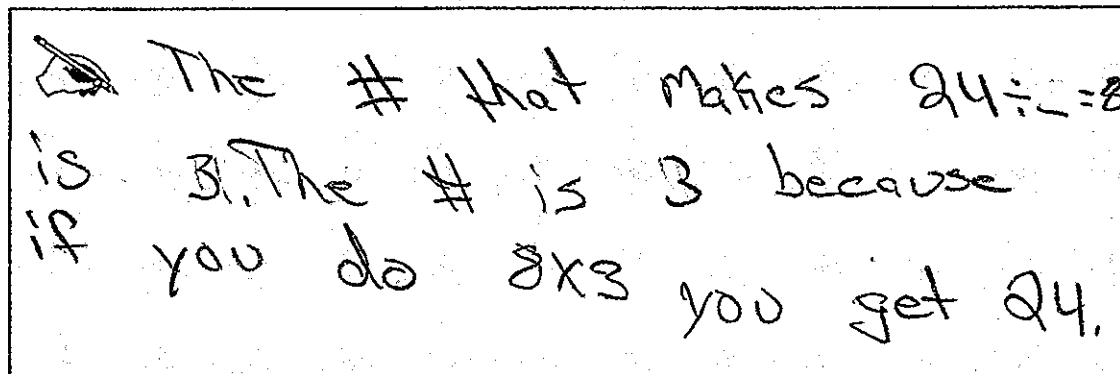 The # that makes 24÷_=8
is 3. The # is 3 because
if you do 8x3 you get 24.